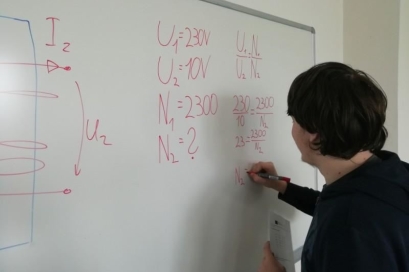 I₂
U₂
U₁=230V
U₂=10V
N₁=2300
N₂=?
U₁/U₂=N₁/N₂
230/10=2300/N₂
23=2300/N₂
N₂